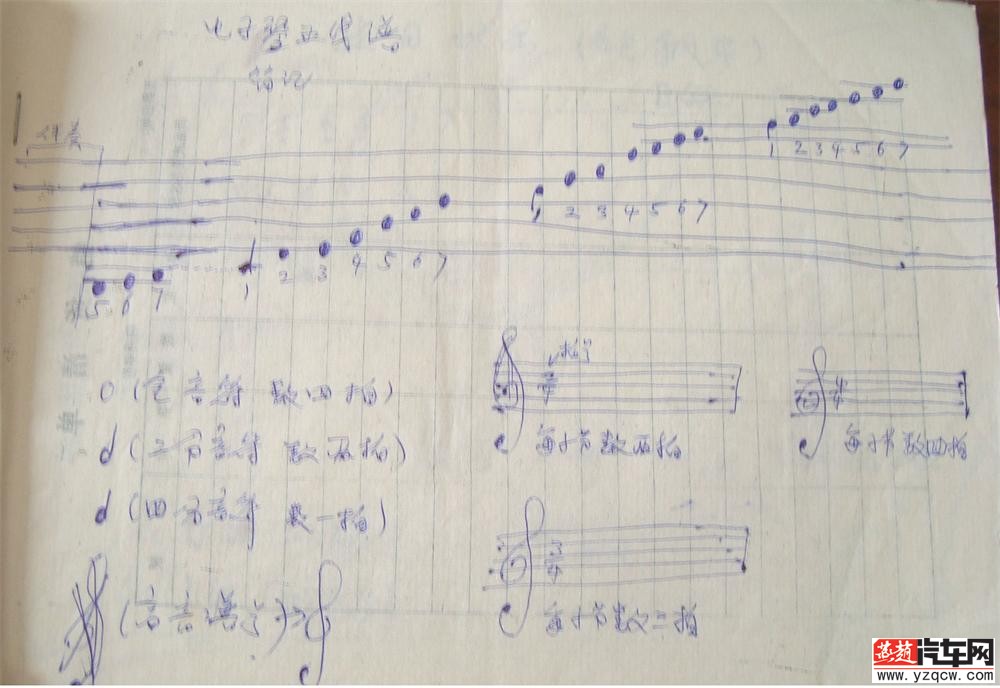 电子琴五线谱
笔记
伴奏
5 6 7 1 2 3 4 5 6 7 1 2 3 4 5 6 7 1 2 3 4 5 6 7
(全音符 数四拍)
(二分音符 数两拍)
(四分音符 数一拍)
(高音谱号)
拍号
2/4
每小节数两拍
4/4
每小节数四拍
3/4
每小节数三拍
燕赵汽车网
www.yzqcw.com